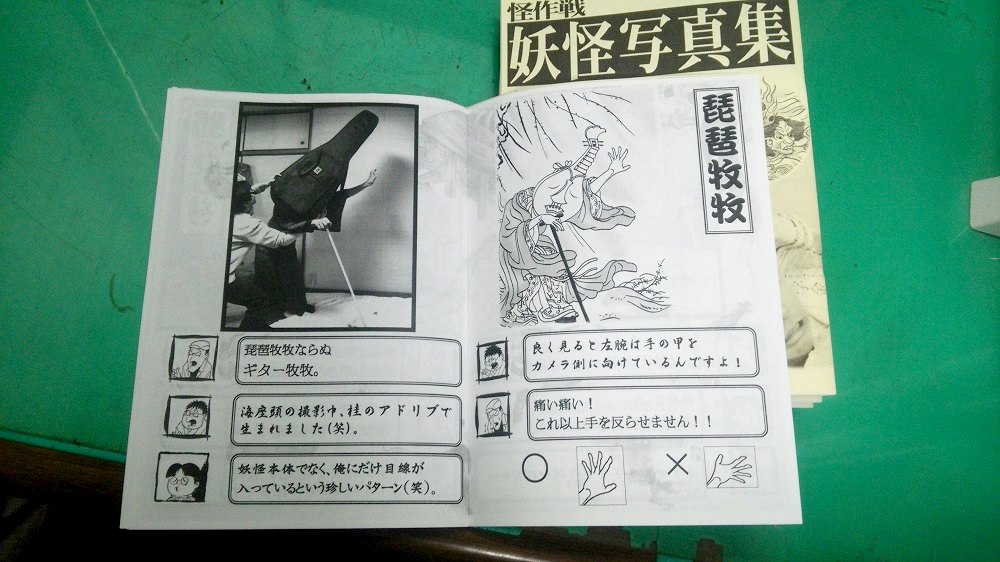 怪作戦
妖怪写真集
琵琶牧牧
琵琶牧牧ならぬ
ギター牧牧。
海座頭の撮影中、桂のアドリブで
生まれました(笑)。
妖怪本体でなく、俺にだけ目線が
入っているという珍しいパターン(笑)。
良く見ると左腕は手の甲を
カメラ側に向けているんですよ!
痛い痛い!
これ以上手を反らせません!!
○ ×